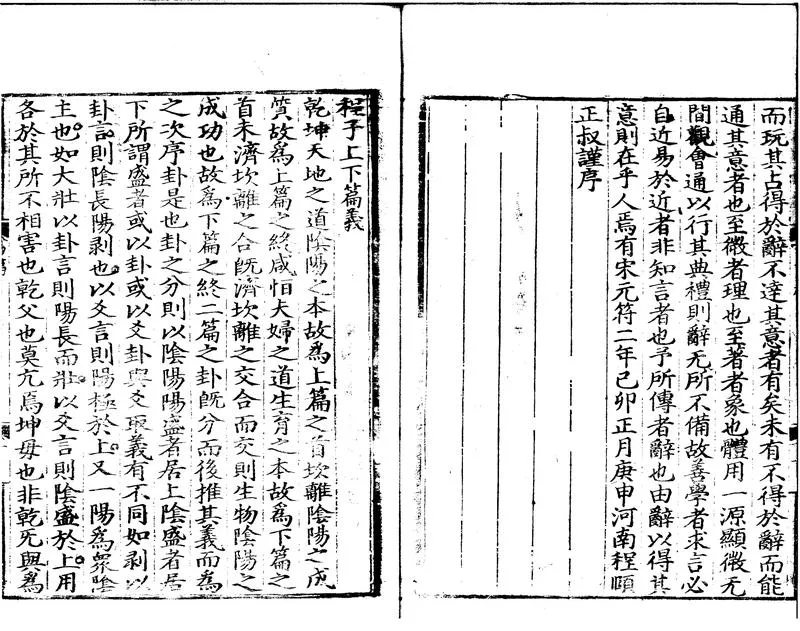 而玩其占得於辭不達其意者有矣未有不得於辭而能
通其意者也至微者理也至著者象也體用一源顯微无
間觀會通以行其典禮則辭无所不備故善學者求言必
自近易於近者非知言者也予所傳者辭也由辭以得其
意則在乎人焉有宋元符二年己卯正月庚申河南程頤
正叔謹序
程子上下篇義
乾坤天地之道陰陽之本故爲上篇之首坎離陰陽之成
質故爲上篇之終咸恒夫婦之道生育之本故爲下篇之
首未濟坎離之合旣濟坎離之交合而交則生物陰陽之
成功也故爲下篇之終二篇之卦旣分而後推其義而爲
之次序卦是也卦之分則以陰陽陽盛者居上陰盛者居
下所謂盛者或以卦或以爻卦與爻取義有不同如剥以
卦言則陰長陽剥也以爻言則陽極於上又一陽爲衆陰
主也如大壯以卦言則陽長而壯以爻言則陰盛於上用
各於其所不相害也乾父也莫亢焉坤母也非乾无與爲